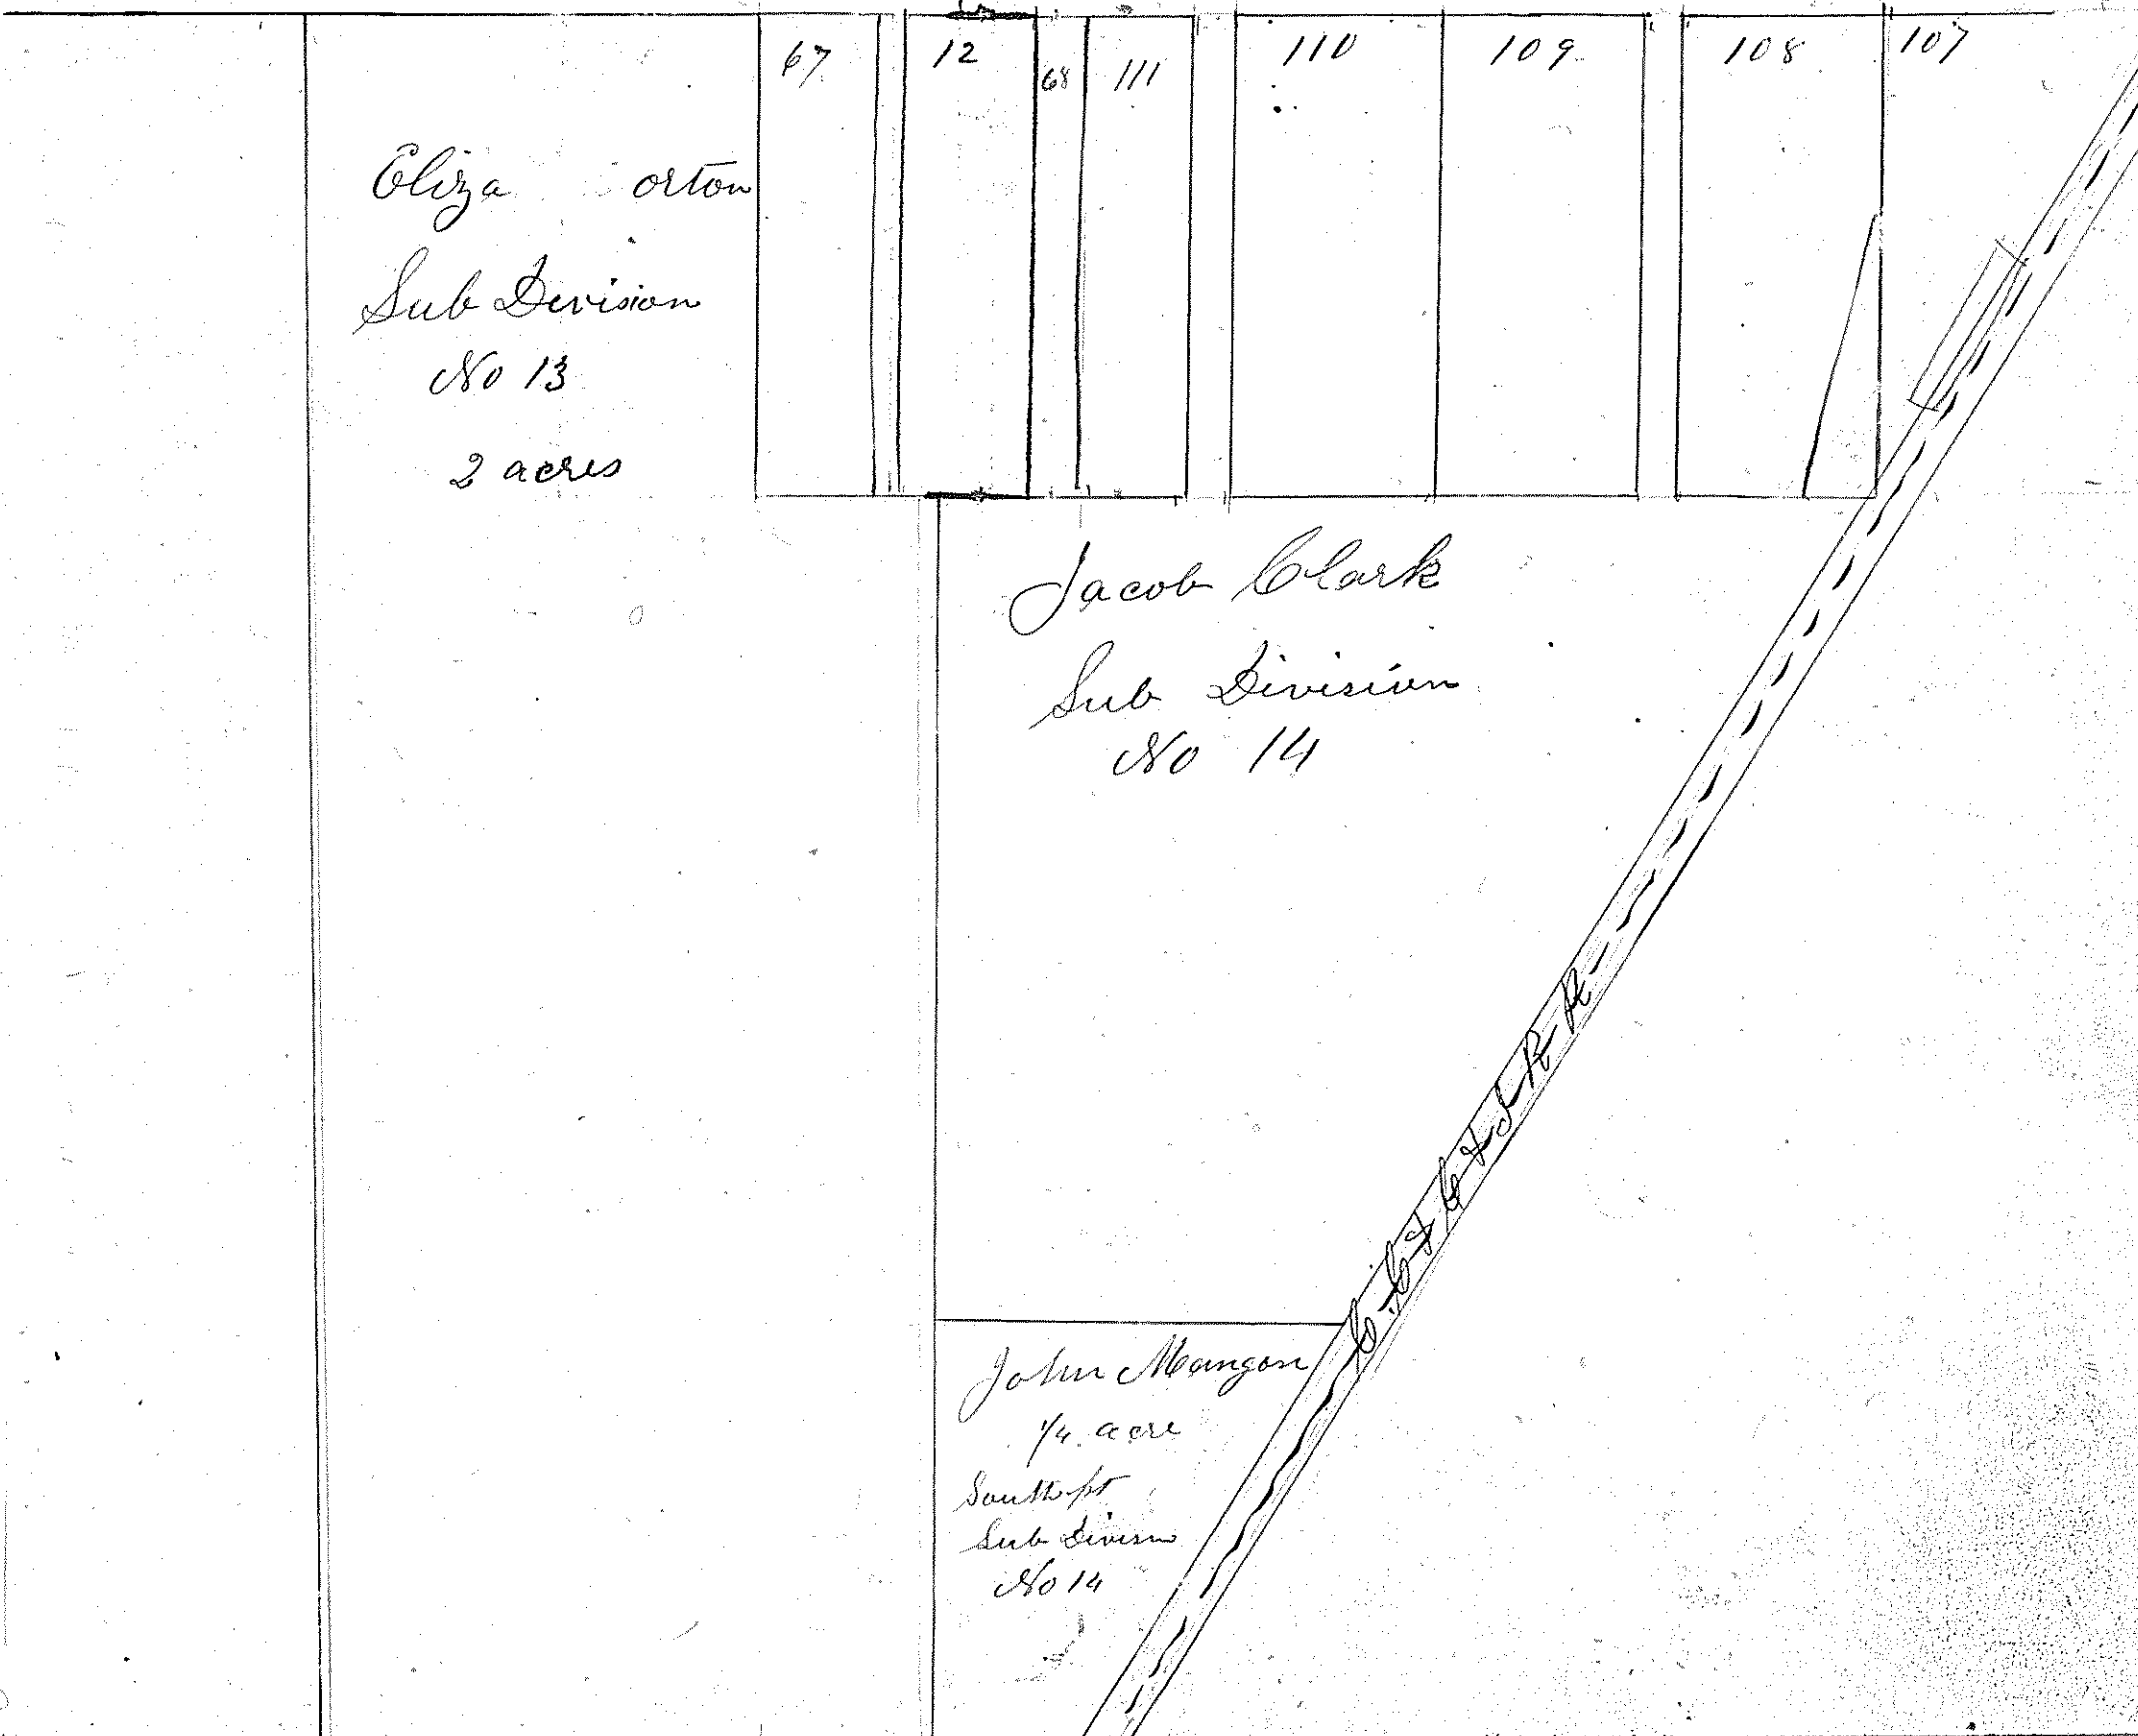 67
12
68
111
110
109
108
107
Eliza orton
Sub Division
No 13
2 acres
Jacob Clark
Sub Division
No 14
C. C. & C. & I. R R
John Mangon
1/4 acre
South pt
Sub Division
No 14